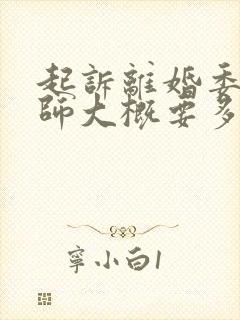 起訴離婚委
師大概要多
寧小白1